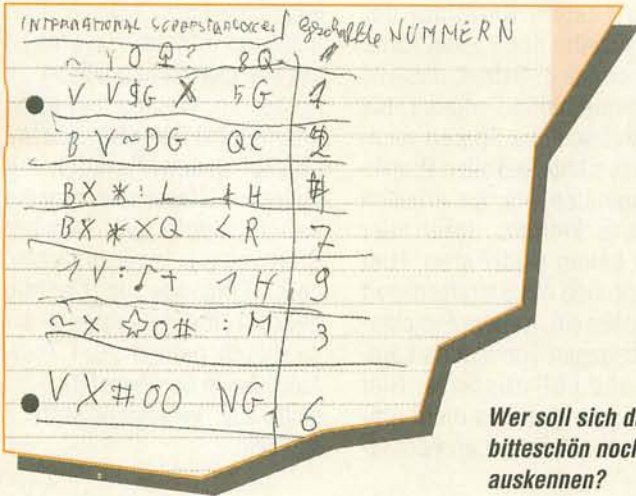 INTERNATIONAL SUPERSTARSOCCER geschaffte NUMMERN
~ Y O Q ? 8 Q
V V $ G X 5 G 1
B V ~ D G Q C 2
B X * : L # H #
B X * X Q < R 7
1 V : ♪ + 1 H 9
~ X ☆ O # : M 3
V X # O O N G 6
Wer soll sich d
bitteschön noch
auskennen?